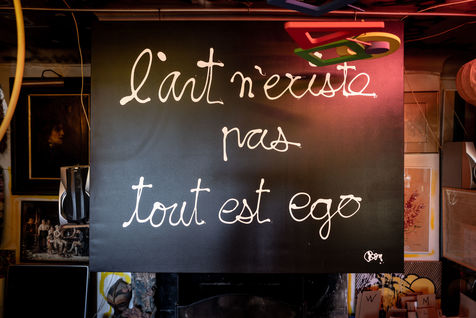 l'art n'existe
pas
tout est ego
Ben
W
M